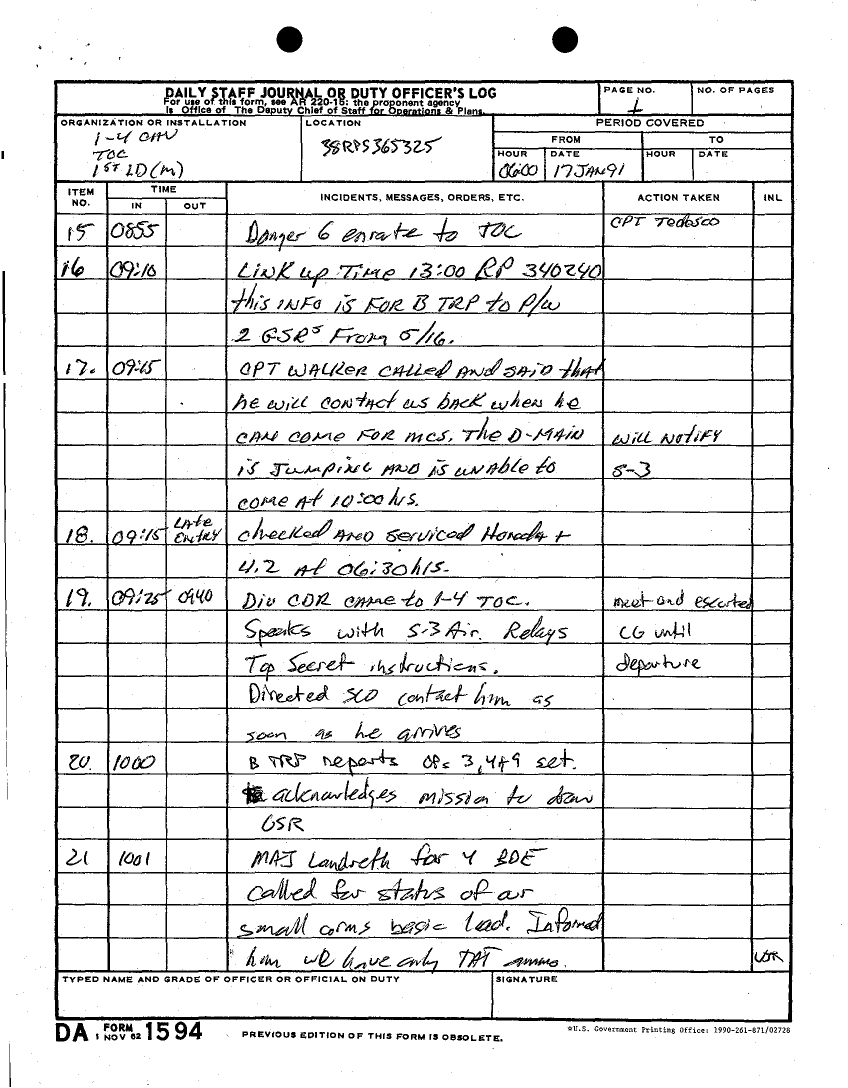 DAILY STAFF JOURNAL OR DUTY OFFICER'S LOG
For use of this form, see AR 220-15; the proponent agency
is Office of The Deputy Chief of Staff for Operations & Plans.
PAGE NO.
1
NO. OF PAGES
ORGANIZATION OR INSTALLATION
1-4 CAV
TOC
1ST ID(M)
LOCATION
38RPS365325
PERIOD COVERED
FROM
TO
HOUR DATE HOUR DATE
0600 17 JAN 91
ITEM NO. TIME IN OUT INCIDENTS, MESSAGES, ORDERS, ETC. ACTION TAKEN INL
15 0855 Danger 6 enrate to TOC CPT Tedesco
16 09:10 LINK up Time 13:00 RP 340240
this INFO is FOR B TRP to P/U
2 GSRs From 5/16.
17. 09:15 CPT WALKER CALLED AND SAID that
he will contact us back when he
CAN COME FOR MCS. The D-MAIN will Notify
is Jumping AND is unAble to S-3
come At 10:00 hrs.
18. 09:15 LAte ENtRY checked AND serviced Honda +
4.2 At 06:30 hrs.
19. 09:25 0940 Div CDR came to 1-4 TOC. meet and escorted
Speaks with S-3 Air. Relays CG until
Top Secret instructions. departure
Directed SCO contact him as
soon as he arrives
20. 1000 B TRP reports OPs 3, 4 & 9 set.
acknowledges mission to draw
GSR
21 1001 MAJ Landreth for 4 BDE
called for status of our
small arms basic load. Informed
him we have only TAT ammo.
TYPED NAME AND GRADE OF OFFICER OR OFFICIAL ON DUTY
SIGNATURE
DA FORM 1594
1 NOV 62
PREVIOUS EDITION OF THIS FORM IS OBSOLETE.
*U.S. Government Printing Office: 1990-261-871/02728